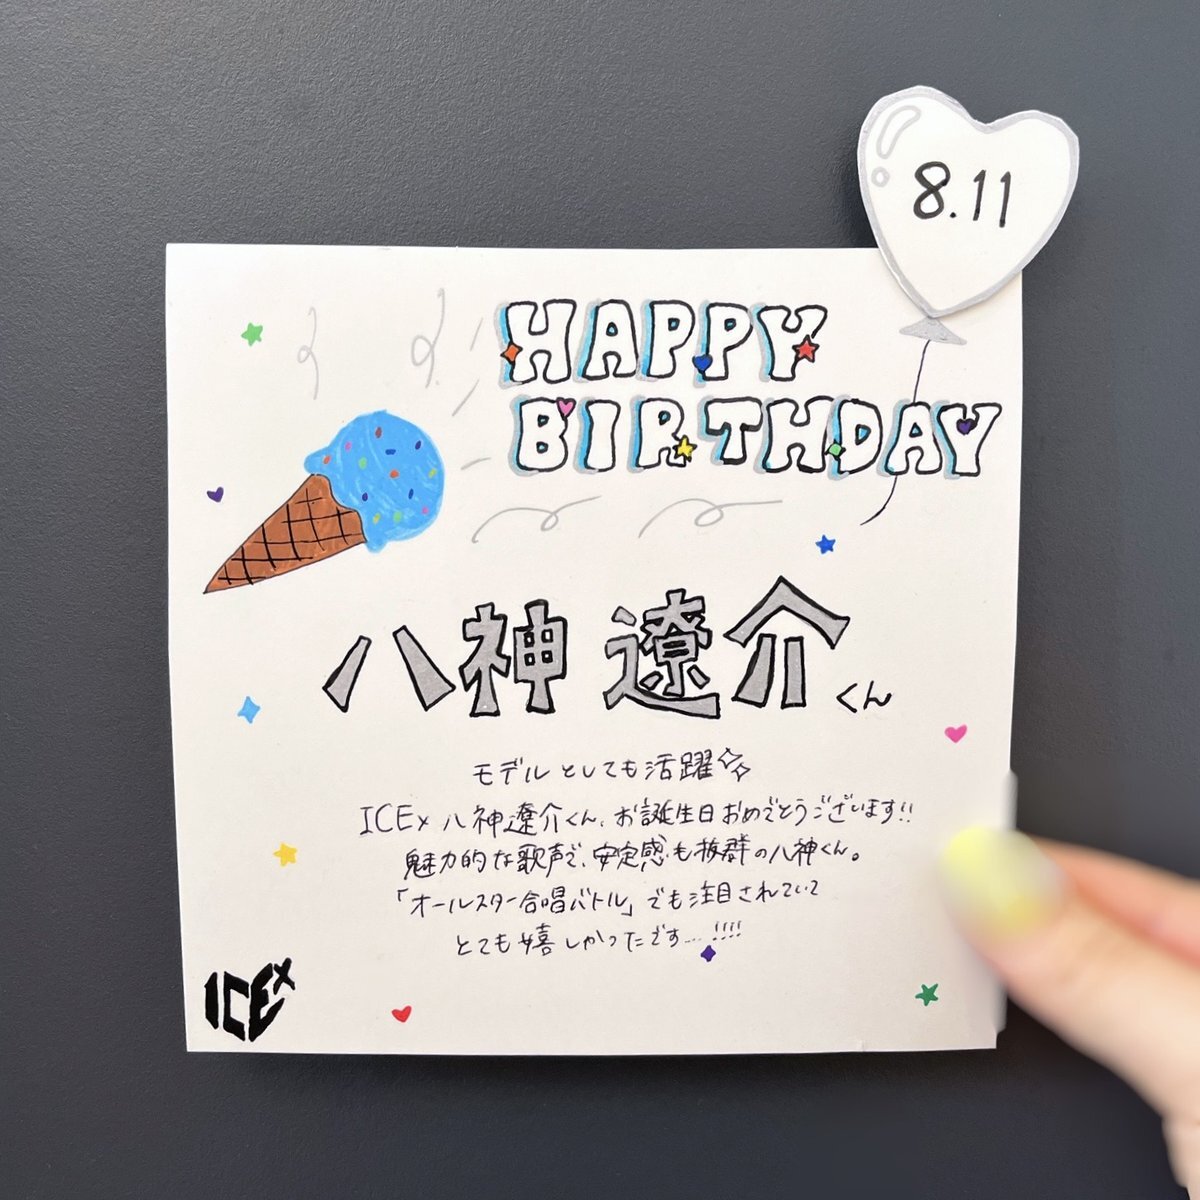 8.11
HAPPY
BIRTHDAY
八神 遼介くん
モデルとしても活躍
ICEx 八神遼介くん、お誕生日おめでとうございます!!
魅力的な歌声で、安定感も抜群の八神くん。
「オールスター合唱バトル」でも注目されていて
とても嬉しかったです…!!!!
ICEx